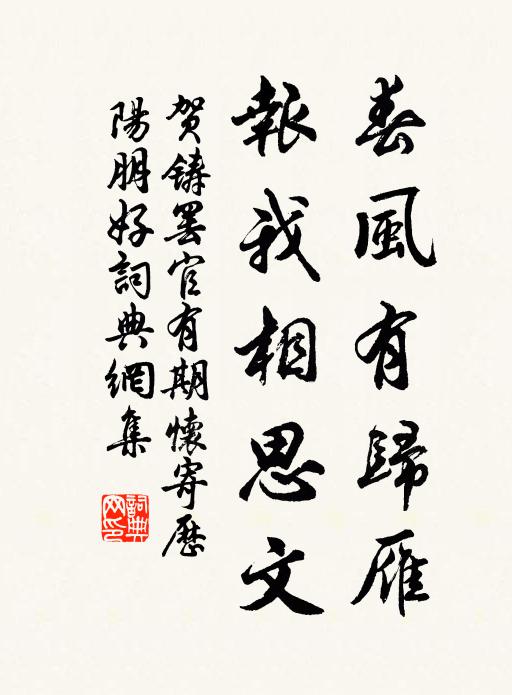 春風有歸雁
報我相思文
賀鑄罷官有期懷寄歷
陽朋好詞典網集
詞典网印